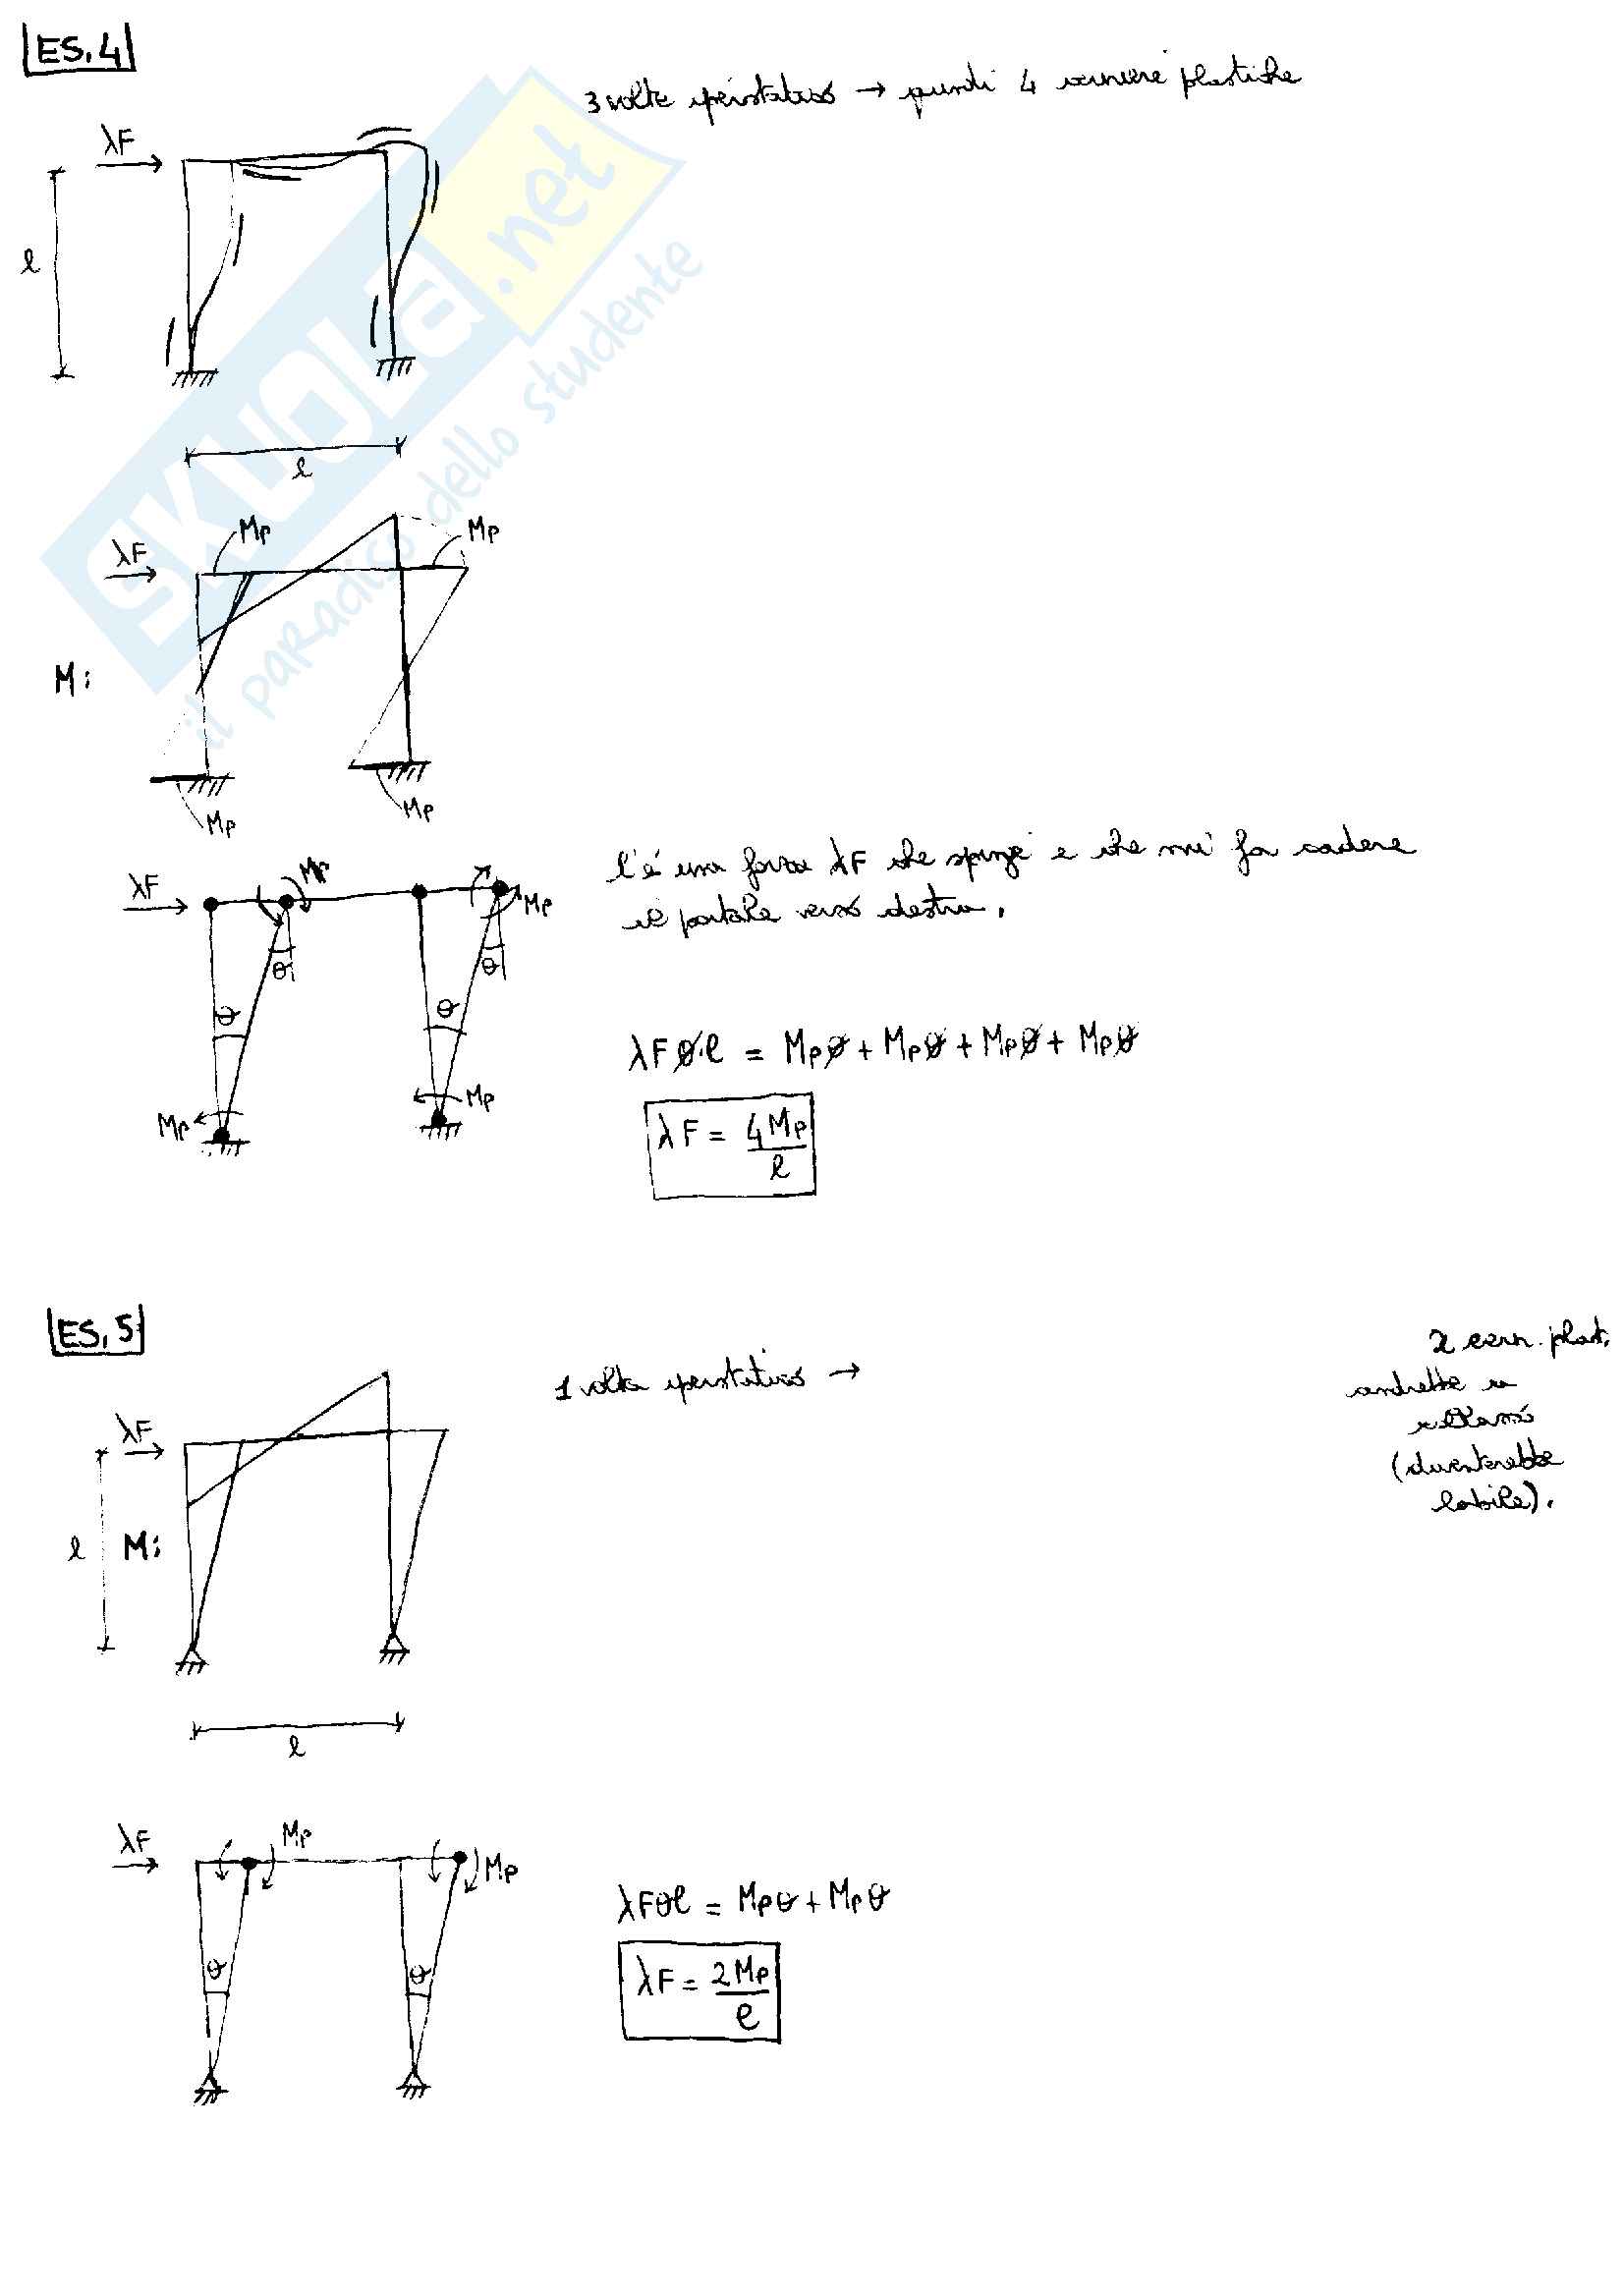 ES.4
3 volte iperstatico → quindi 4 cerniere plastiche
λF
l
l
SKUOLA.net
il paradiso dello studente
Mp
Mp
λF
M:
Mp
Mp
c'è una forza λF che spinge e che mi fa cadere
il portale verso destra.
λF
Mp
Mp
θ
θ
θ
θ
λFθ·l = Mpθ + Mpθ + Mpθ + Mpθ
Mp
Mp
λF = 4Mp/l
ES.5
1 volta iperstatico →
2 cern. plast.
andrebbe a
(diventerebbe
labile).
λF
l
M:
l
λF
Mp
Mp
λFθl = Mpθ + Mpθ
θ
θ
λF = 2Mp/l